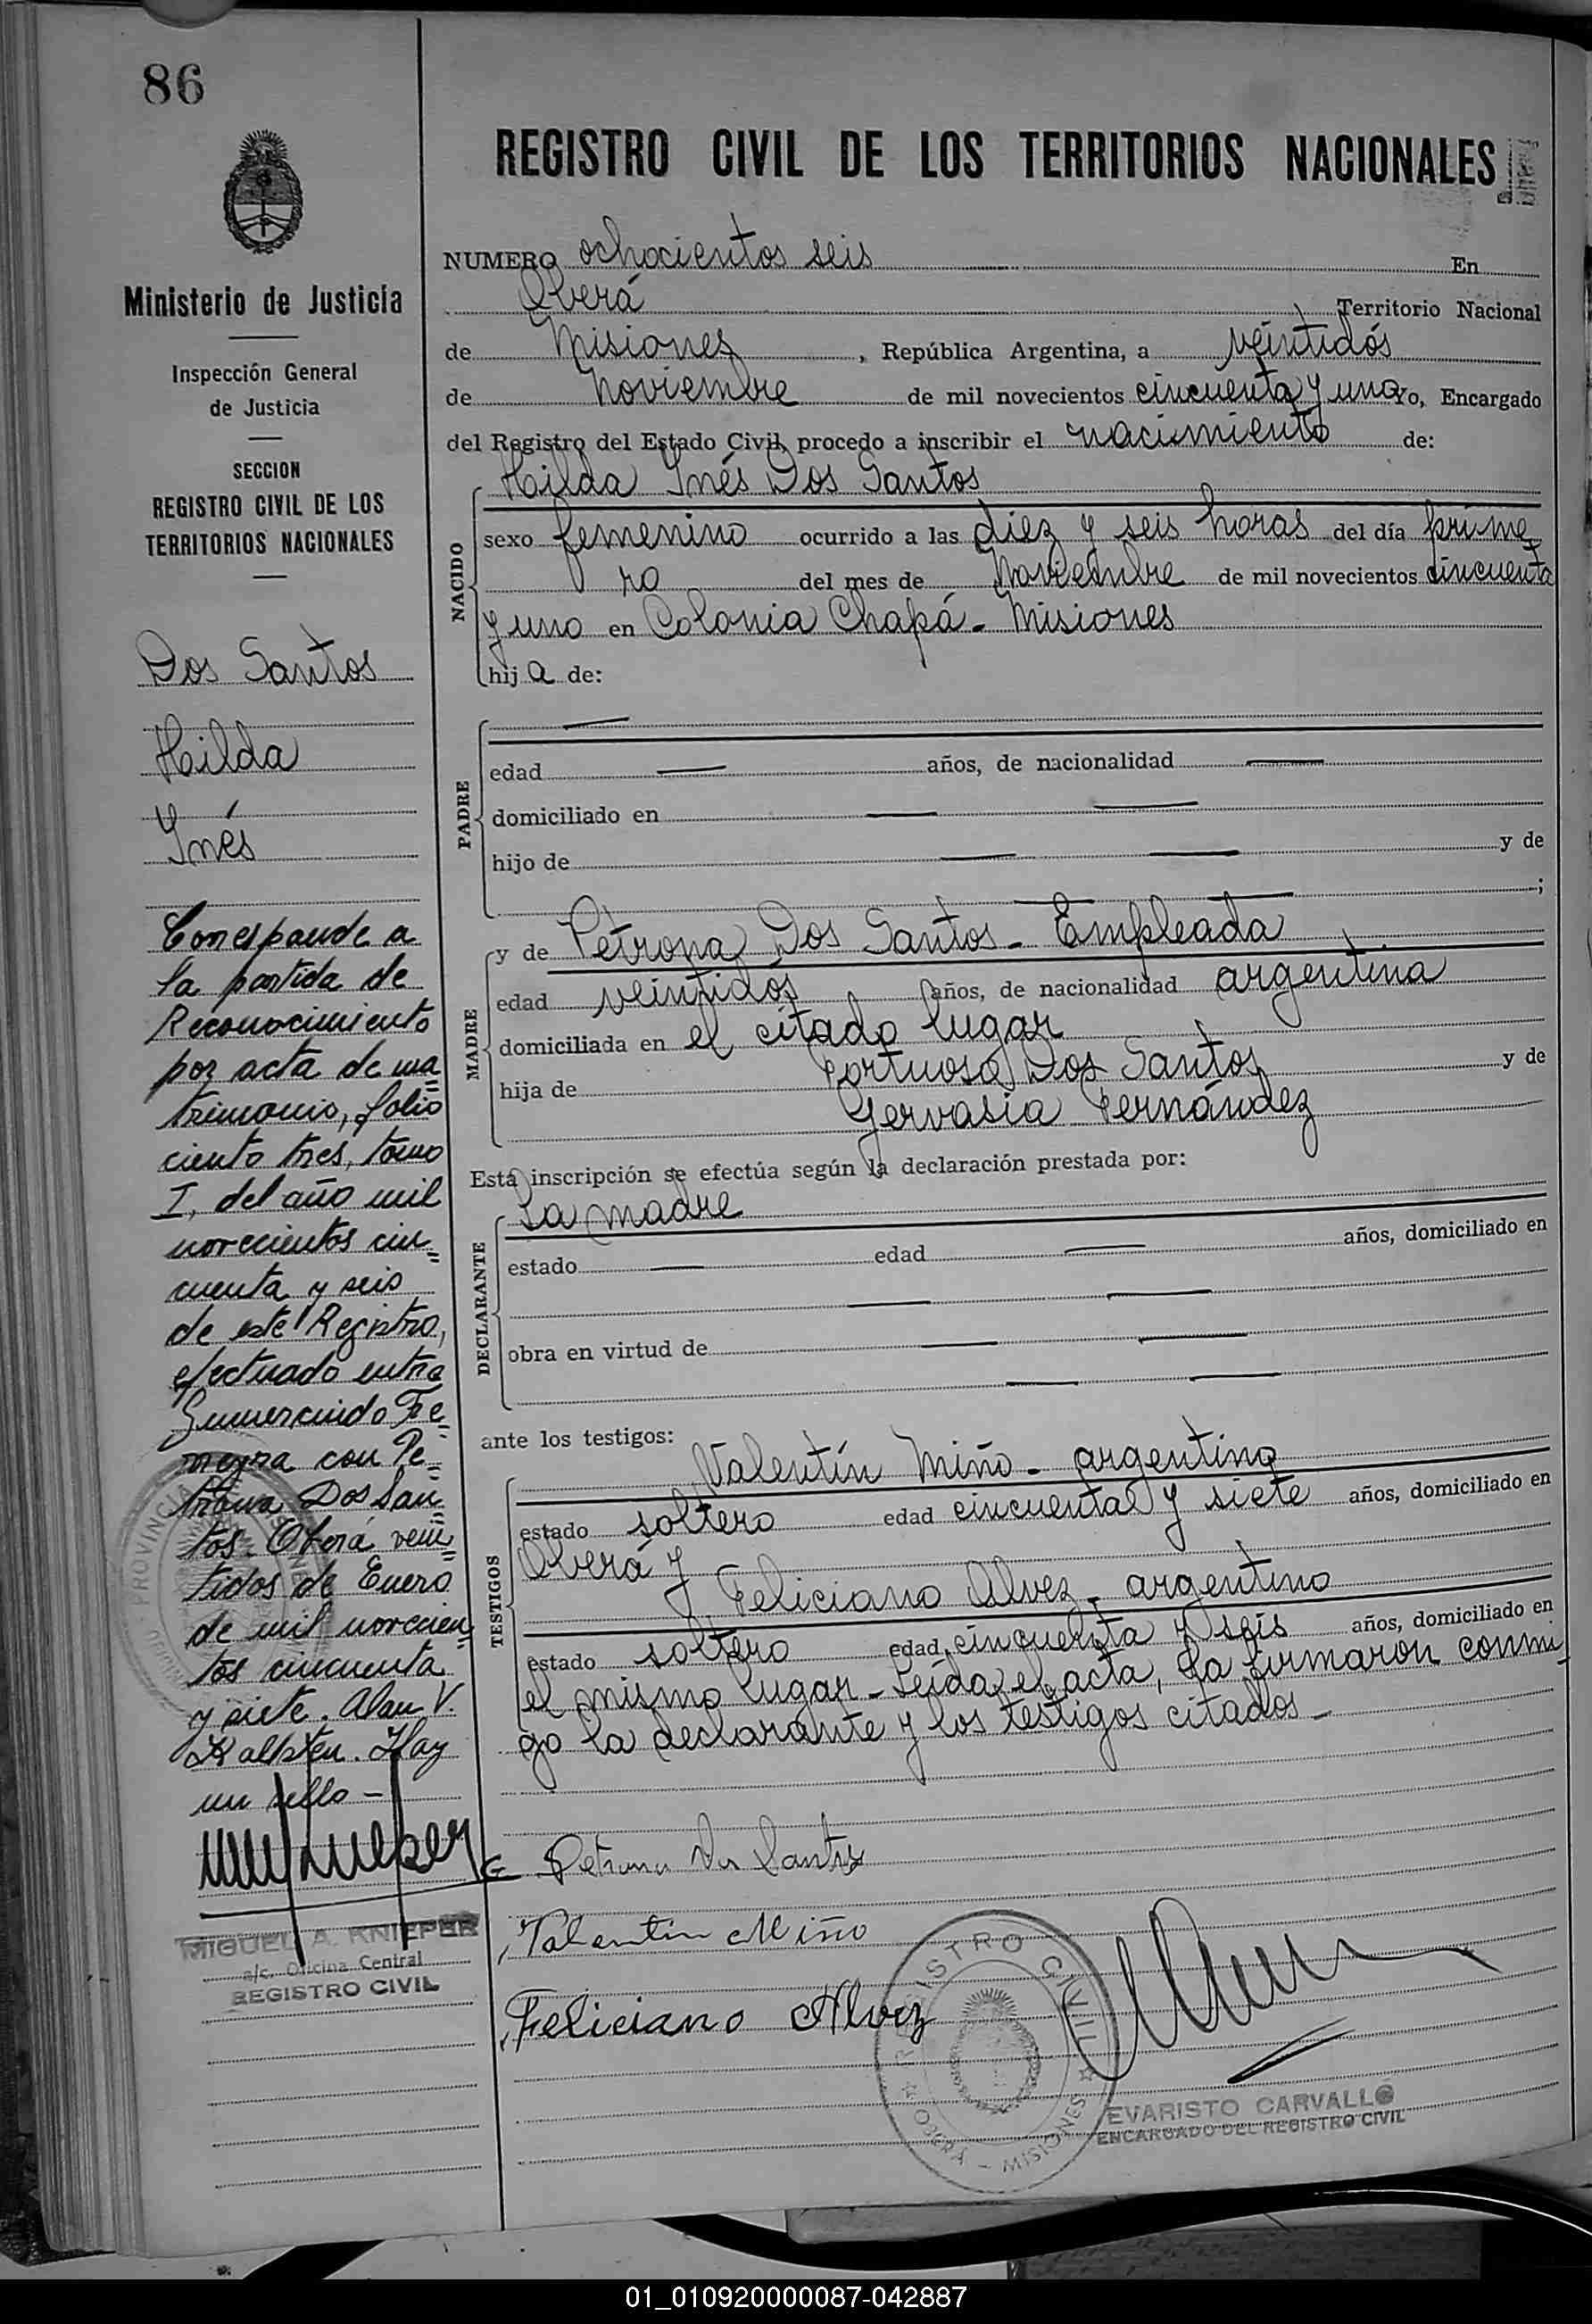 86
Ministerio de Justicia
Inspección General
de Justicia
SECCION
REGISTRO CIVIL DE LOS
TERRITORIOS NACIONALES
Dos Santos
Hilda
Inés
Corresponde a
la partida de
Reconocimiento
por acta de ma
trimonio, folio
ciento tres, tomo
I, del año mil
novecientos cin
cuenta y seis
de este Registro,
efectuado entre
Gumercindo Fe
rreyra con Pe
trona Dos San
tos. Oberá vein
tidos de Enero
de mil novecien
tos cincuenta
y siete. Alan V.
Kallsten. Hay
un sello -
MIGUEL A. KNIEPER
a/c. Oficina Central
REGISTRO CIVIL
REGISTRO CIVIL DE LOS TERRITORIOS NACIONALES
NUMERO ochocientos seis En
Oberá Territorio Nacional
de Misiones, República Argentina, a veintidós
de Noviembre de mil novecientos cincuenta y uno Yo, Encargado
del Registro del Estado Civil, procedo a inscribir el nacimiento de:
Hilda Inés Dos Santos
NACIDO
sexo femenino ocurrido a las diez y seis horas del día prime
ro del mes de Noviembre de mil novecientos cincuenta
y uno en Colonia Chapá - Misiones
hija de:
PADRE
edad años, de nacionalidad
domiciliado en
hijo de y de
;
MADRE
y de Petrona Dos Santos - Empleada
edad veintidós años, de nacionalidad argentina
domiciliada en el citado lugar
hija de Portuosa Dos Santos y de
Gervasia Fernández
Esta inscripción se efectúa según la declaración prestada por:
DECLARANTE
La madre
estado edad años, domiciliado en
obra en virtud de
ante los testigos:
TESTIGOS
Valentín Miño - argentino
estado soltero edad cincuenta y siete años, domiciliado en
Oberá y
Feliciano Alvez - argentino
estado soltero edad cincuenta y seis años, domiciliado en
el mismo lugar - Leída el acta, la firmaron conmi
go la declarante y los testigos citados -
Petrona Dos Santos
Valentin Miño
Feliciano Alvez
REGISTRO CIVIL
OBERA - MISIONES
EVARISTO CARVALLO
ENCARGADO DEL REGISTRO CIVIL
01_010920000087-042887